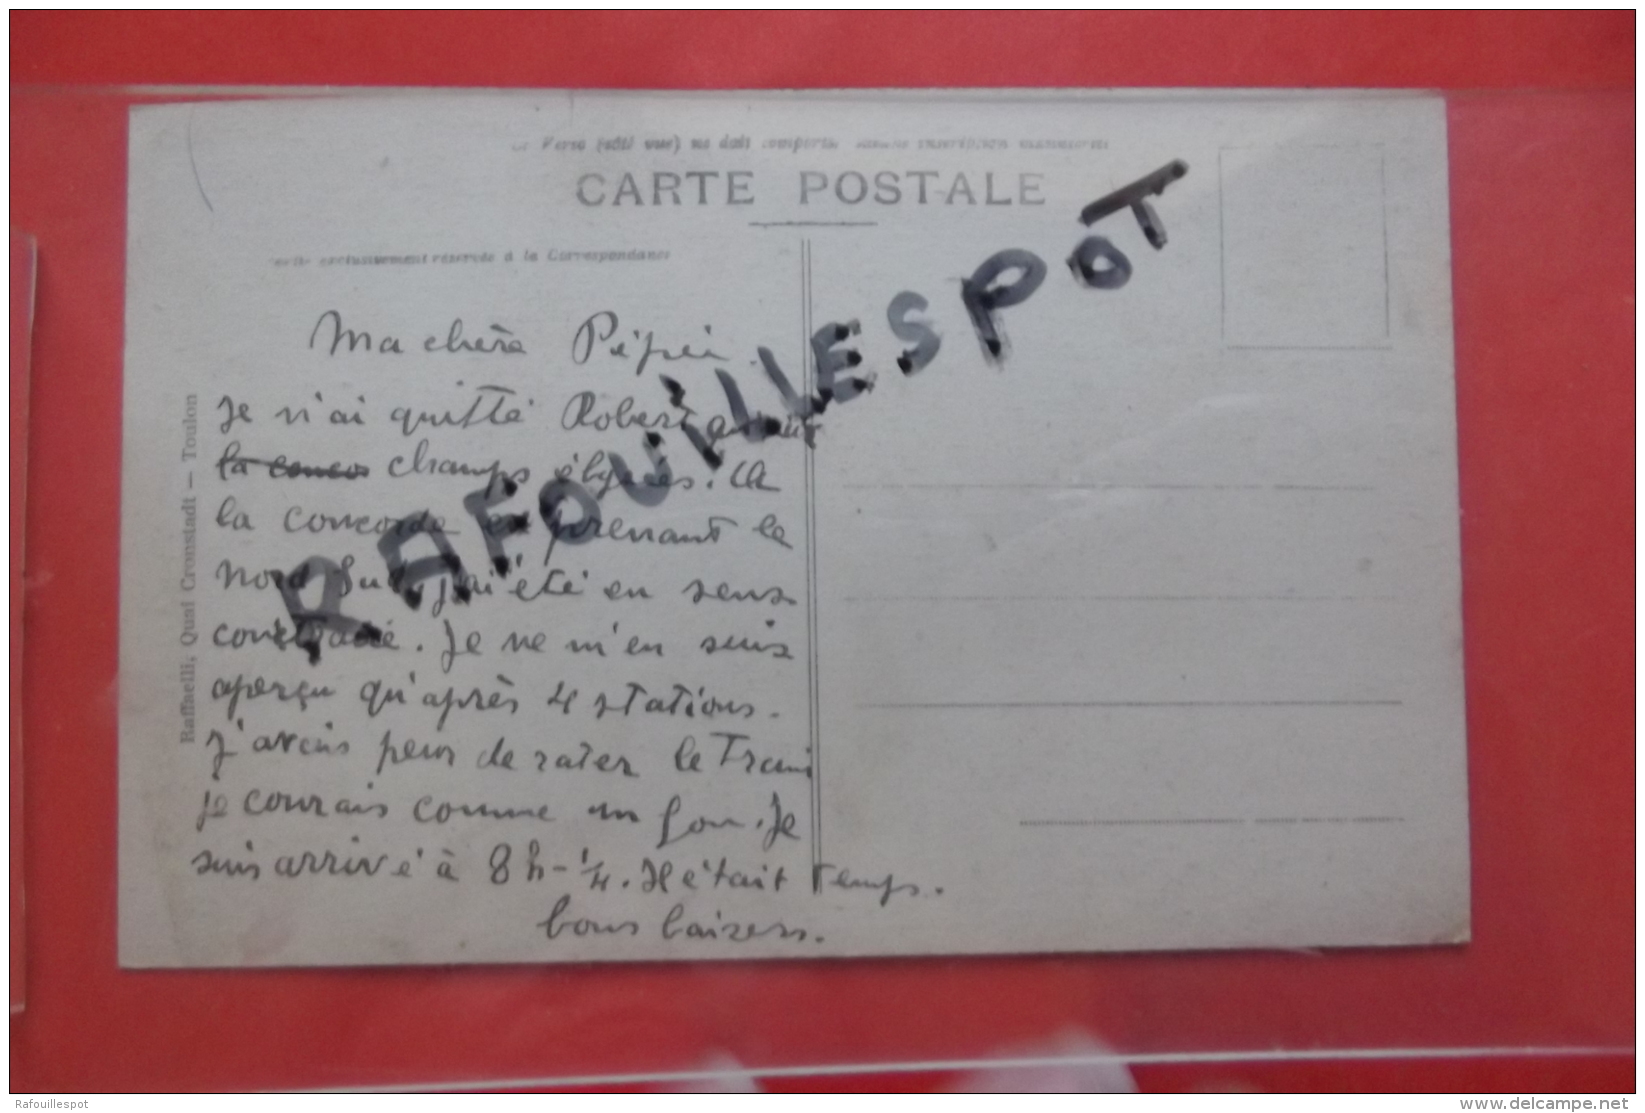 Verso (côté vue) ne doit comporter aucune inscription
CARTE POSTALE
Partie exclusivement réservée à la Correspondance
RAFOUILLESPOT
Ma chère Pépée.
Je n'ai quitté Robert qu'aux
la conco champs élysées. A
la concorde en prenant le
Nord Sud, j'ai été en sens
contraire. Je ne m'en suis
aperçu qu'après 4 stations.
J'avais peur de rater le train
je courais comme un fou. Je
suis arrivé à 8 h - 1/4. Il était temps.
bons baisers.
Raffaelli, Quai Cronstadt — Toulon
Rafouillespot
www.delcampe.net